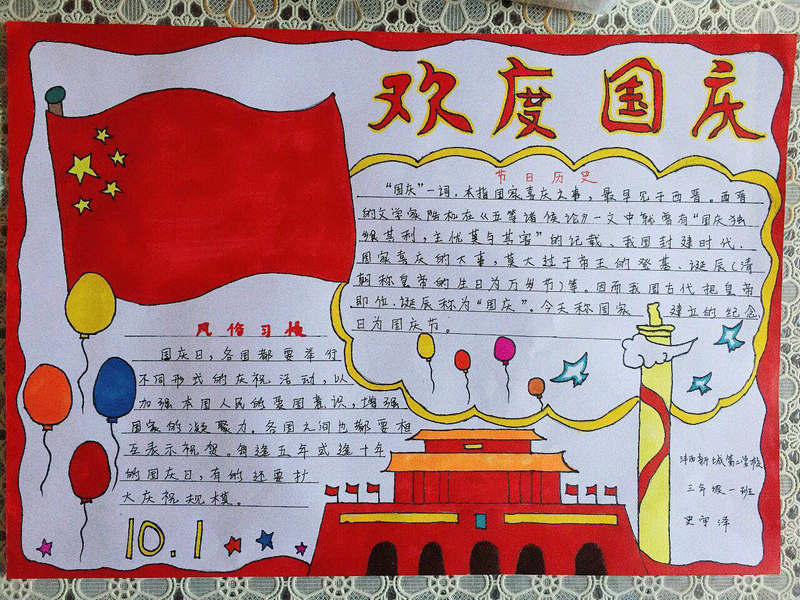 欢度国庆
节日历史
“国庆”一词，本指国家喜庆之事，最早见于西晋。西晋
的文学家陆机在《五等诸侯论》一文中就曾有“国庆独
飨其利，主忧莫与其害”的记载、我国封建时代、
国家喜庆的大事，莫大过于帝王的登基、诞辰（清
朝称皇帝的生日为万岁节）等。因而我国古代把皇帝
即位、诞辰称为“国庆”。今天称国家 建立的纪念
日为国庆节。
风俗习惯
国庆日，各国都要举行
不同形式的庆祝活动，以
加强本国人民的爱国意识，增强
国家的凝聚力。各国之间也都要相
互表示祝贺。每逢五年或逢十年
的国庆日，有的还要扩
大庆祝规模。
10.1
新城第二学校
三年级一班
史 泽